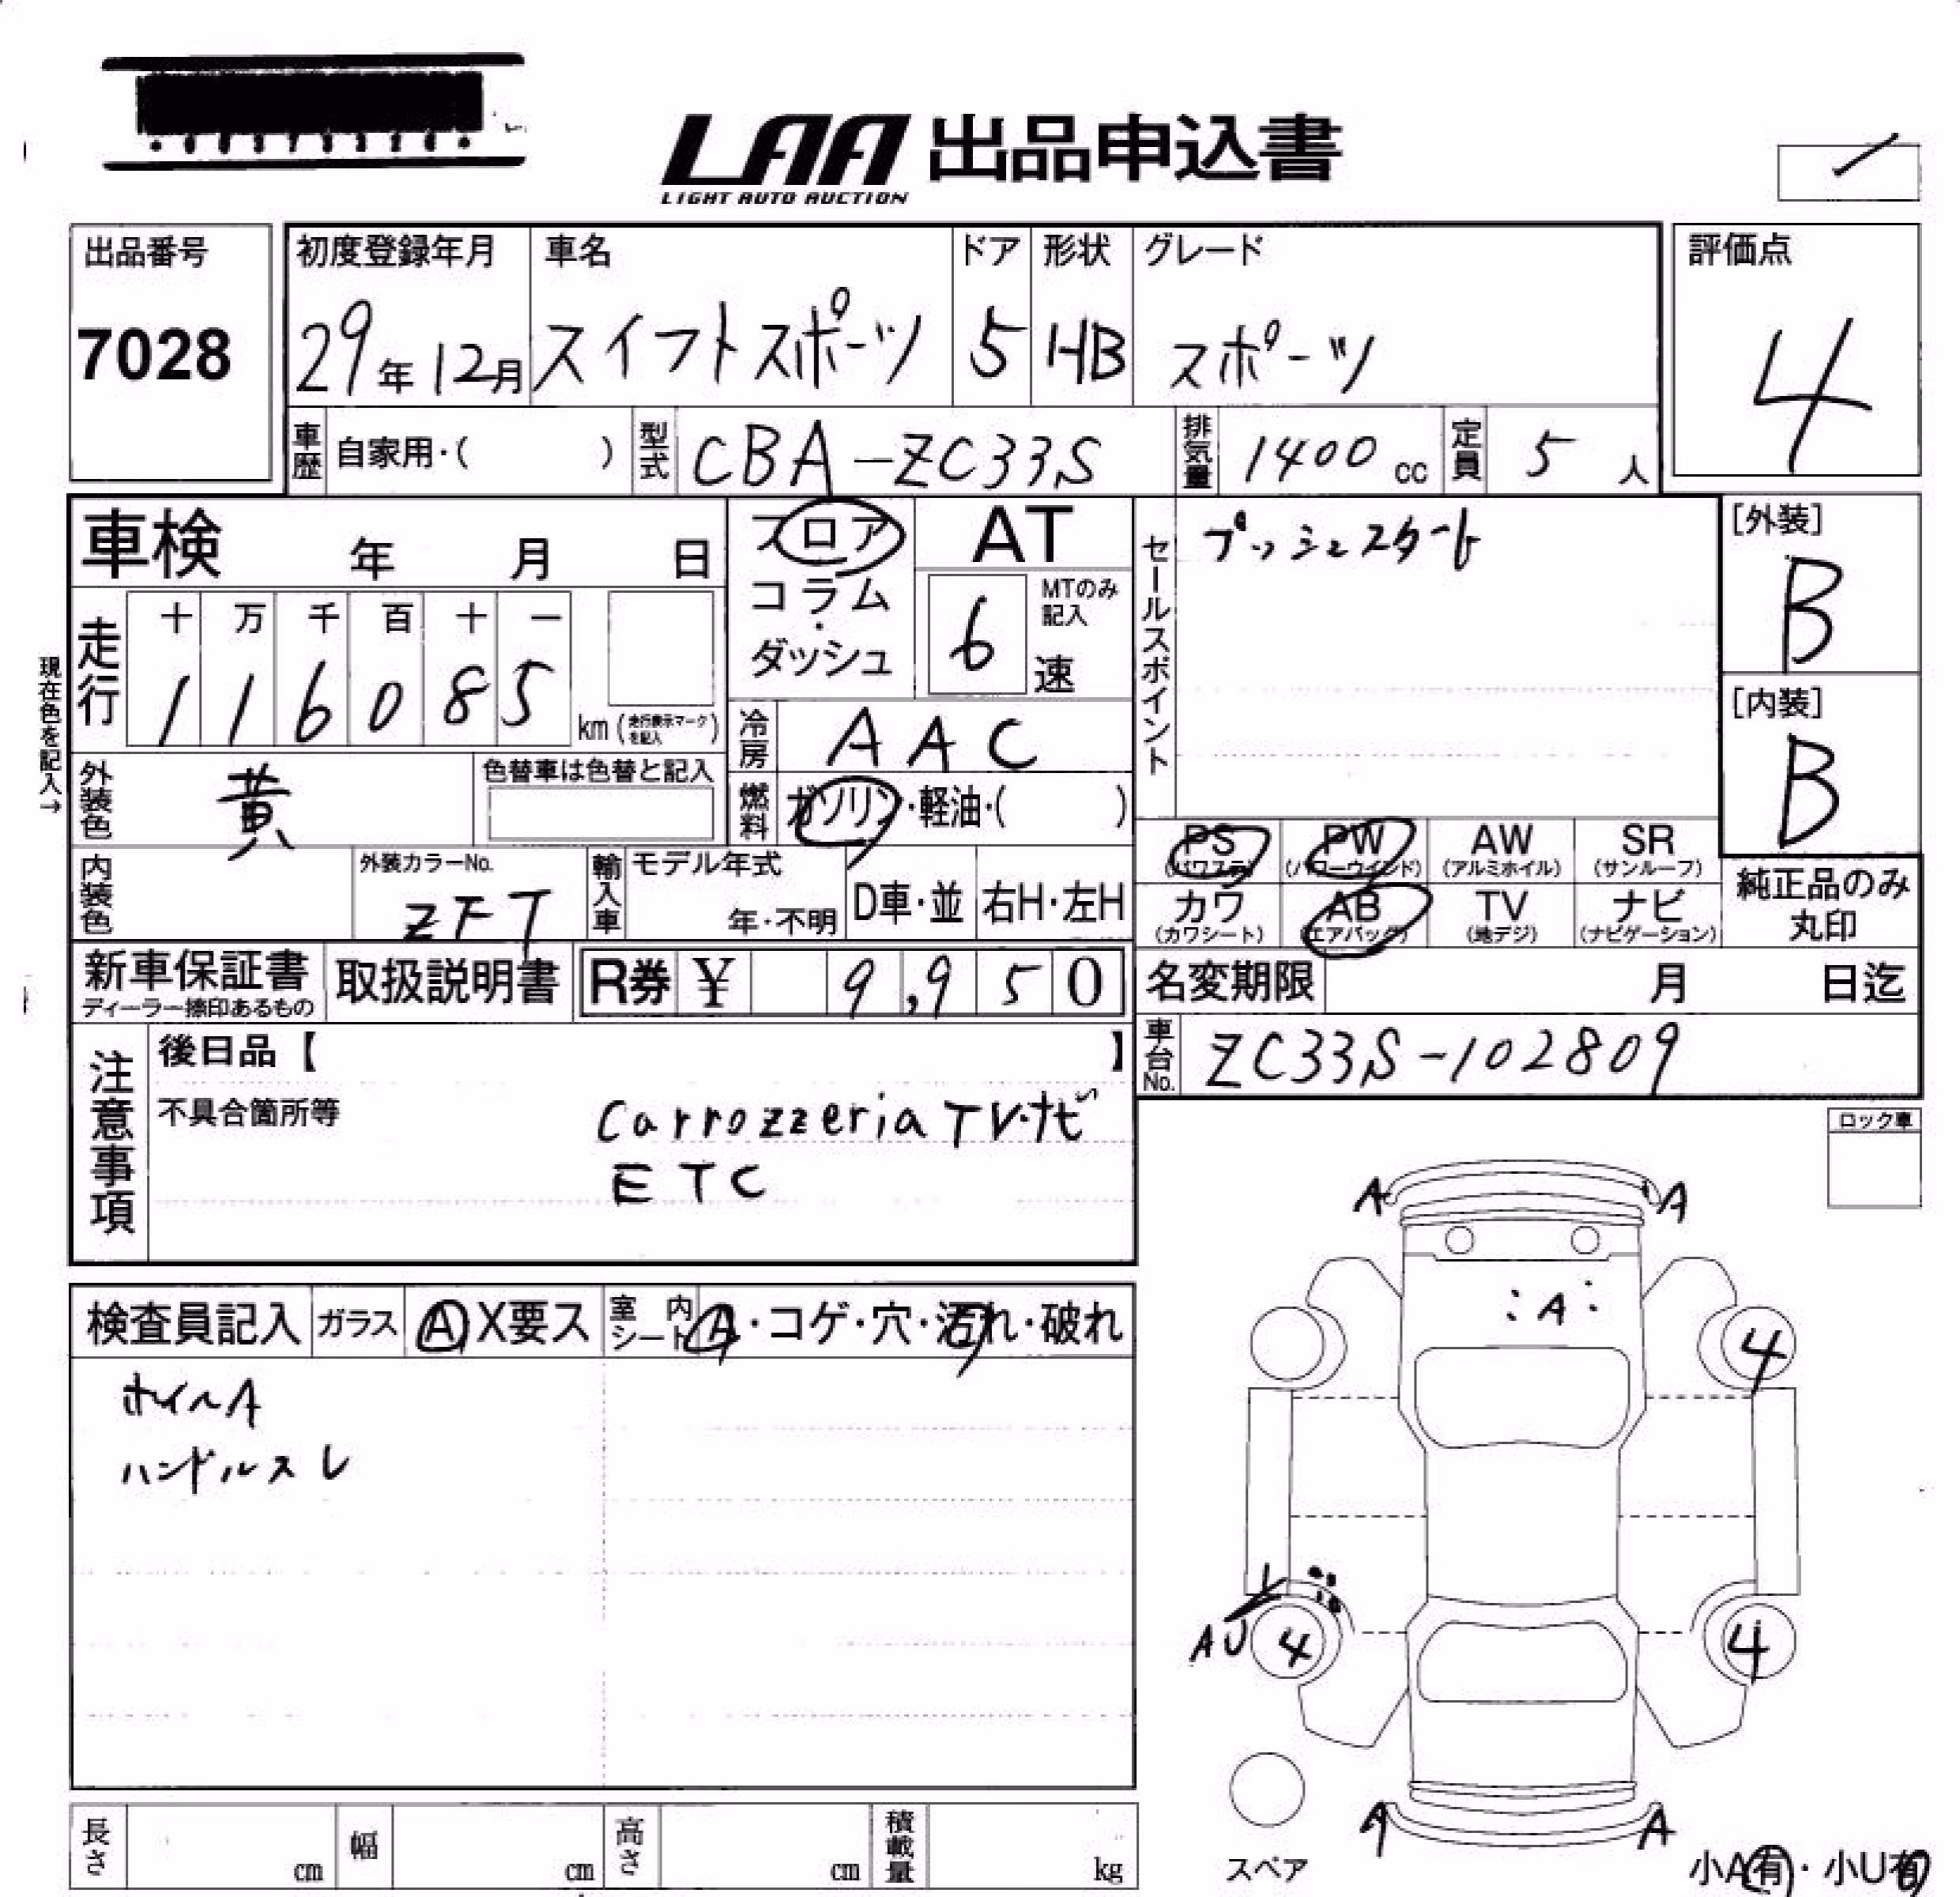 LAA 出品申込書
LIGHT AUTO AUCTION
出品番号
7028
初度登録年月
29年12月
車名
スイフトスポーツ
ドア
5
形状
HB
グレード
スポーツ
評価点
4
車歴 自家用・( )
型式 CBA-ZC33S
排気量 1400 cc
定員 5 人
車検 年 月 日
現在色を記入→
走行
十 万 千 百 十 一
1 1 6 0 8 5
km (走行表示マークを記入)
フロア
コラム
・
ダッシュ
AT
6 速
MTのみ記入
冷房 AAC
燃料 ガソリン・軽油・( )
外装色 黄
色替車は色替と記入
内装色
外装カラーNo.
ZFT
輸入車
モデル年式
年・不明
D車・並
右H・左H
セールスポイント
プッシュスタート
[外装]
B
[内装]
B
PS (パワステ)
PW (パワーウインド)
AW (アルミホイル)
SR (サンルーフ)
カワ (カワシート)
AB (エアバッグ)
TV (地デジ)
ナビ (ナビゲーション)
純正品のみ
丸印
新車保証書
ディーラー捺印あるもの
取扱説明書
R券 ¥ 9,950
名変期限 月 日迄
車台No. ZC33S-102809
注意事項
後日品【 】
不具合箇所等
carrozzeria TV・ナビ
ETC
ロック車
検査員記入
ガラス A X要ス
室内シート A・コゲ・穴・汚れ・破れ
ホイールA
ハンドルスレ
A A
A
4
AU 4 4
A A
スペア
小A有・小U有
長さ cm
幅 cm
高さ cm
積載量 kg